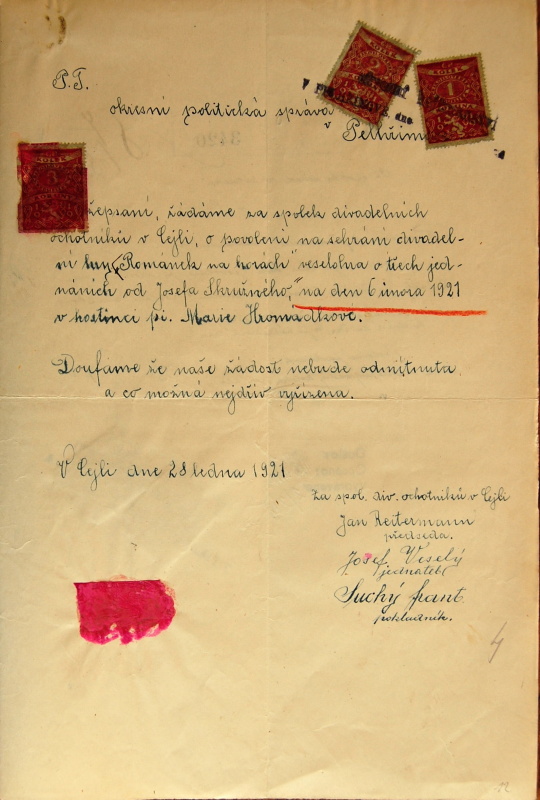 P.T.
okresní politická správa
v Pelhřim
KOLEK
2
KOLEK
1
KOLEK
3
žepsaní, žádáme za spolek divadelních
ochotníků v Cejli, o povolení na sehrání divadel-
ní hry „Románek na horách" veselohra o třech jed-
náních od Josefa Skružného, na den 6 února 1921
v hostinci pí. Marie Hromádkové.
Doufáme že naše žádost nebude odmítnuta
a co možná nejdřív vyřízena.
V Cejli dne 28 ledna 1921
za spol. div. ochotníků v Cejli
Jan Reitermann
předseda.
Josef Veselý
jednatel
Suchý Frant.
pokladník.
4